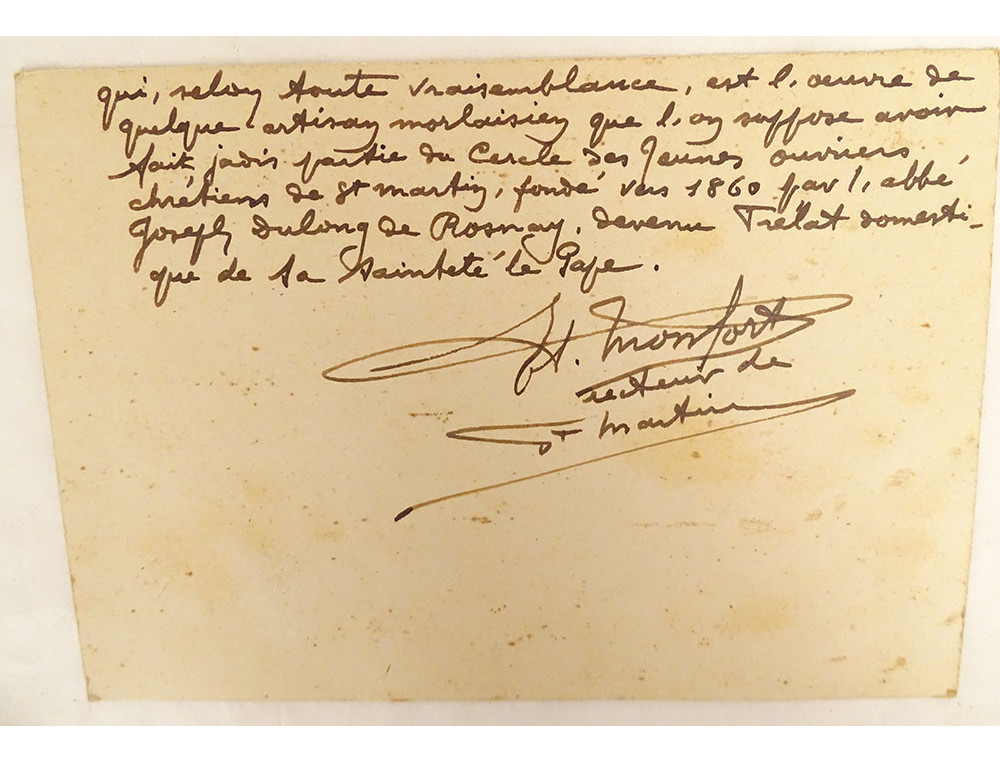 qui, selon toute vraisemblance, est l'œuvre de
quelque artisan morlaisien que l'on suppose avoir
fait jadis partie du Cercle des Jeunes ouvriers
chrétiens de St Martin, fondé vers 1860 par l'abbé
Joseph Dulong de Rosnay, devenu Prélat domesti-
que de Sa Sainteté le Pape.
H. Monfort
recteur de
St Martin